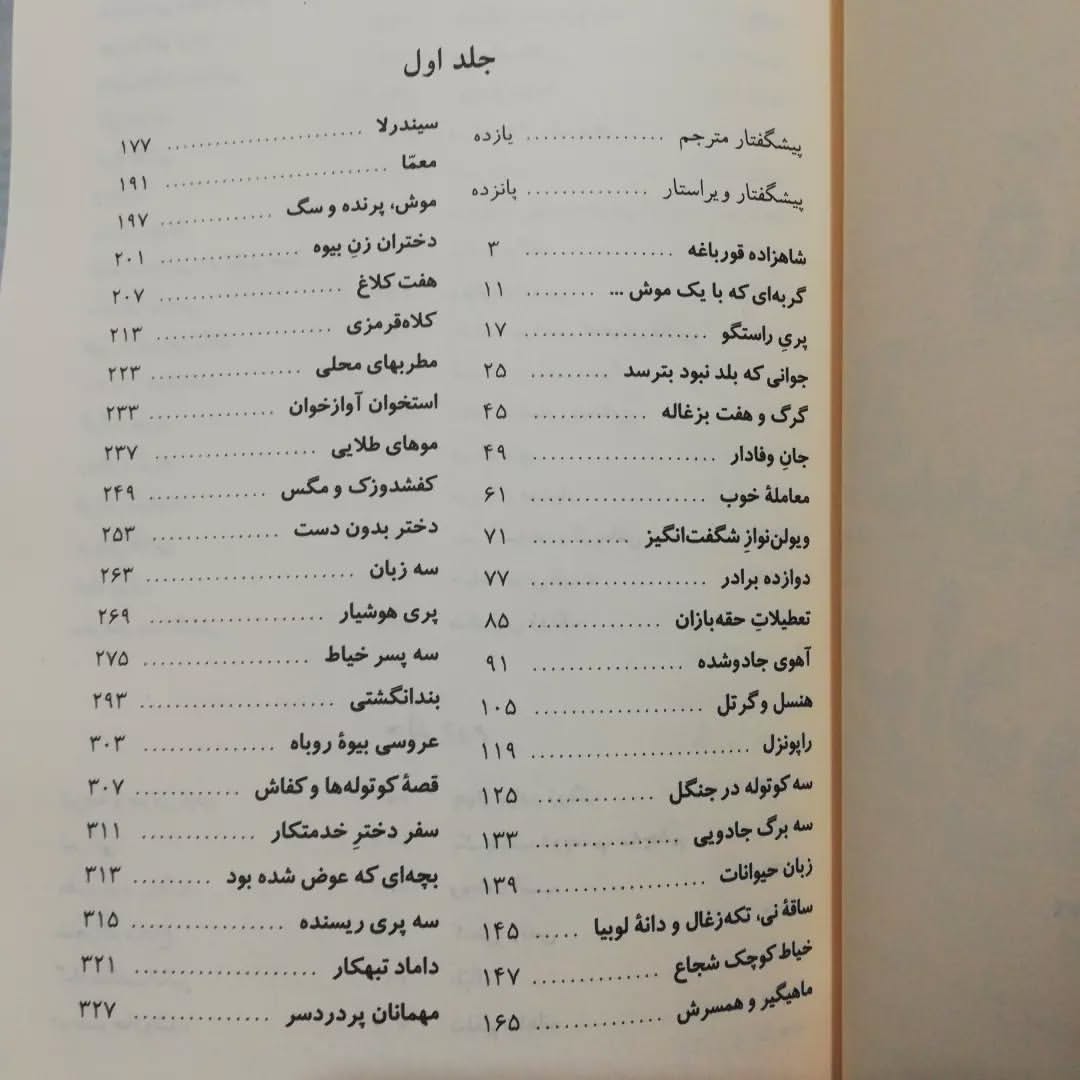 جلد اول
پیشگفتار مترجم ................ یازده
پیشگفتار ویراستار .............. پانزده
شاهزاده قورباغه ................. ۳
گربه‌ای که با یک موش ... ........ ۱۱
پریِ راستگو ..................... ۱۷
جوانی که بلد نبود بترسد ......... ۲۵
گرگ و هفت بزغاله ............. ۴۵
جانِ وفادار ..................... ۴۹
معاملهٔ خوب .................... ۶۱
ویولن‌نوازِ شگفت‌انگیز ........... ۷۱
دوازده برادر .................... ۷۷
تعطیلاتِ حقه‌بازان ............... ۸۵
آهوی جادوشده ................. ۹۱
هنسل و گرتل ................... ۱۰۵
راپونزل ......................... ۱۱۹
سه کوتوله در جنگل ............. ۱۲۵
سه برگ جادویی ................ ۱۳۳
زبان حیوانات ................... ۱۳۹
ساقهٔ نی، تکه‌زغال و دانهٔ لوبیا ..... ۱۴۵
خیاط کوچک شجاع .............. ۱۴۷
ماهیگیر و همسرش .............. ۱۶۵
سیندرلا ...................... ۱۷۷
معمّا .......................... ۱۹۱
موش، پرنده و سگ ............. ۱۹۷
دختران زنِ بیوه ................ ۲۰۱
هفت کلاغ ..................... ۲۰۷
کلاه‌قرمزی .................... ۲۱۳
مطربهای محلی ................. ۲۲۳
استخوان آوازخوان .............. ۲۳۳
موهای طلایی .................. ۲۳۷
کفشدوزک و مگس ............. ۲۴۹
دختر بدون دست ............... ۲۵۳
سه زبان ....................... ۲۶۳
پری هوشیار .................... ۲۶۹
سه پسر خیاط .................. ۲۷۵
بندانگشتی ..................... ۲۹۳
عروسی بیوهٔ روباه .............. ۳۰۳
قصهٔ کوتوله‌ها و کفاش ........... ۳۰۷
سفر دخترِ خدمتکار ............. ۳۱۱
بچه‌ای که عوض شده بود ......... ۳۱۳
سه پری ریسنده ................. ۳۱۵
داماد تبهکار .................... ۳۲۱
مهمانان پردردسر ................ ۳۲۷